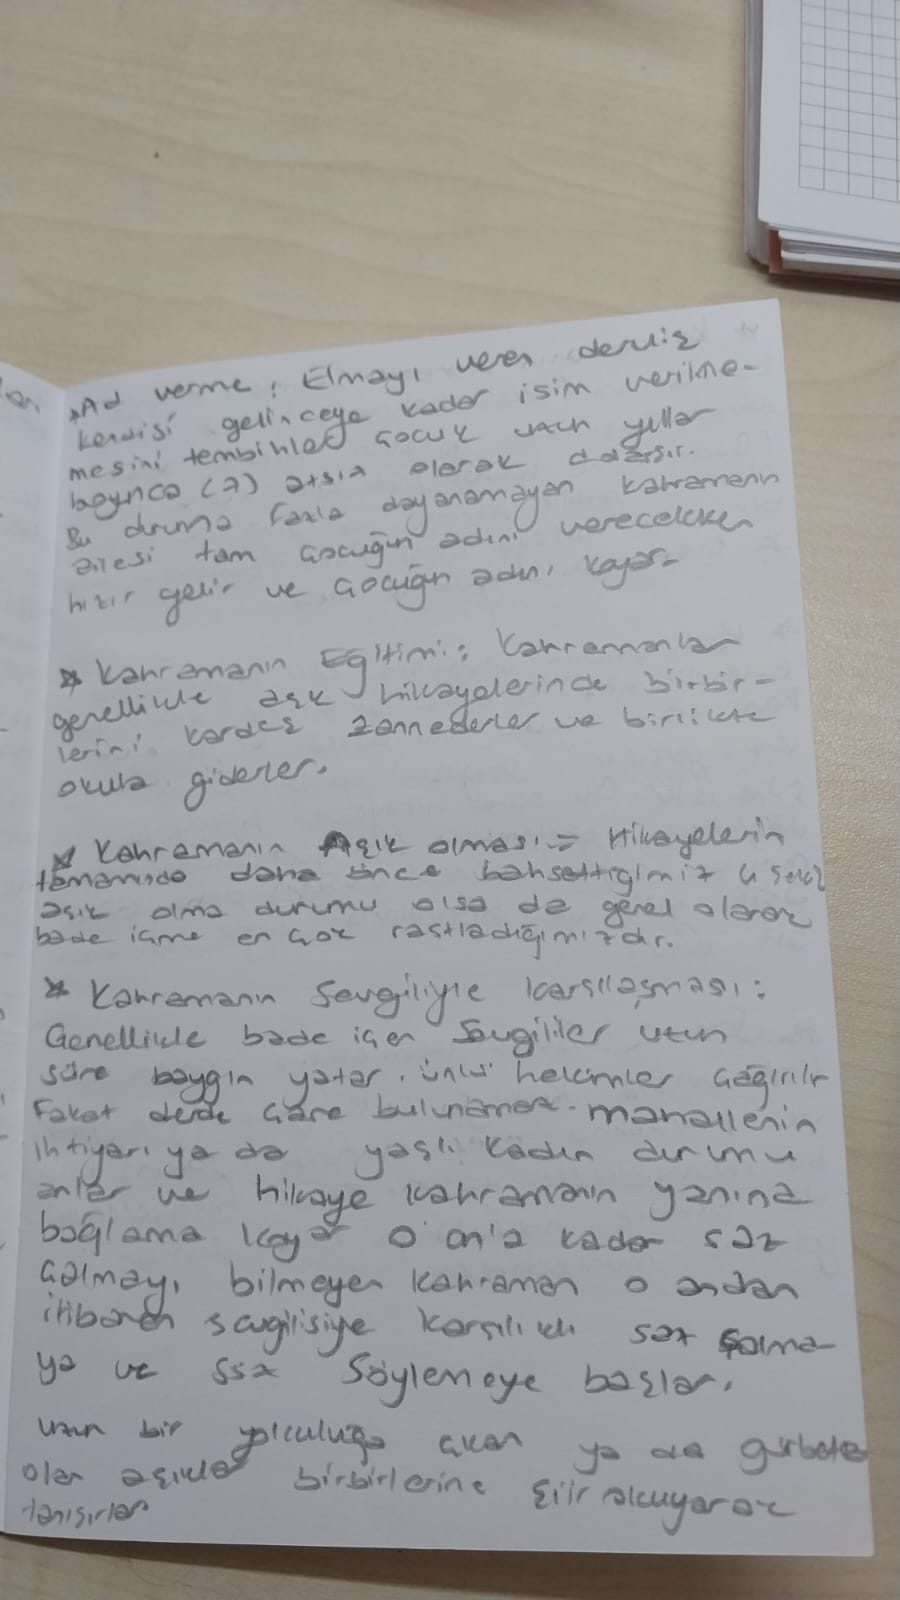 *Ad verme: Elmayı veren derviş
kendisi gelinceye kader isim verilme-
mesini tembihler çocuk uzun yıllar
boyunca (7) atsız olarak dolaşır.
Bu duruma fazla dayanamayan kahramanın
ailesi tam çocuğun adını verecekken
hızır gelir ve çocuğun adını koyar.
* Kahramanın Eğitimi: Kahramanlar
genellikle aşk hikayelerinde birbir-
lerini kardeş zannederler ve birlikte
okula giderler.
* Kahramanın Aşık olması:= Hikayelerin
tamamında daha önce bahsettiğimiz 4 şekil
aşık olma durumu olsa da genel olarak
bade içme en çok rastladığımızdır.
* Kahramanın Sevgiliyle karşılaşması:
Genellikle bade içen Sevgililer uzun
süre baygın yatar. ünlü hekimler çağırılır
Fakat derde çare bulunamaz. mahallenin
ihtiyarı ya da yaşlı kadın durumu
anlar ve hikaye kahramanın yanına
bağlama koyar o an'a kadar saz
çalmayı bilmeyen kahraman o andan
itibaren sevgilisiyle karşılıklı saz çalma-
ya ve söz söylemeye başlar.
uzun bir yolculuğa çıkan ya da gurbette
olan aşıklar birbirlerine şiir okuyarak
tanışırlar